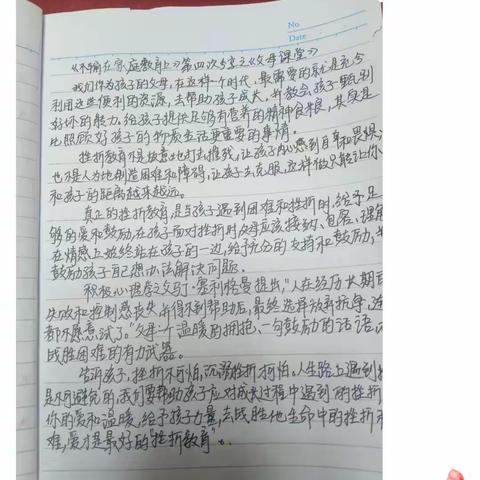 No.
Date
《不输在家庭教育上》第四次分享之《父母课堂》
我们作为孩子的父母,在这样一个时代,最需要的就是充分
利用这些便利的资源,去帮助孩子成长,并教会孩子甄别
好坏的能力。给孩子提供足够有营养的精神食粮,其实是
比照顾好孩子的物质生活更重要的事情。
挫折教育不是故意地打击摧残,让孩子内心感到自卑和畏惧,
也不是人为地制造困难和障碍,让孩子去克服,这样做只能让你
和孩子的距离越来越远。
真正的挫折教育,是当孩子遇到困难和挫折时,给予足
够的爱和鼓励,在孩子面对挫折时父母应该接纳、包容、理解
在情感上始终站在孩子的一边,给予充分的支持和鼓励,
鼓励孩子自己想办法解决问题。
积极心理学之父马丁·塞利格曼提出,"人在经历长期
失败和控制感丧失,并得不到帮助后,最终选择放弃抗争,连
都不愿意试了。"父母一个温暖的拥抱、一句鼓励的话语,
战胜困难的有力武器。
告诉孩子,挫折不可怕,沉溺挫折才可怕。人生路上遇到
是不可避免的,我们要帮助孩子应对成长过程中遇到的挫折
你的爱和温暖,给予孩子力量,去战胜他生命中的挫折
难,爱才是最好的"挫折教育"。